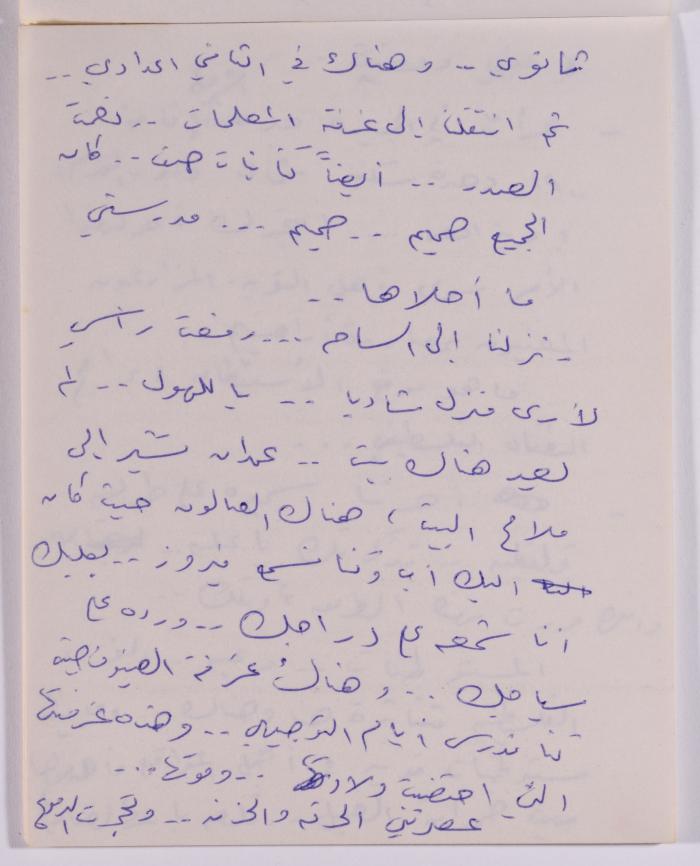 ثانوي .. و هناك في الثاني اعدادي ..
ثم انتقلنا الى غرفة المعلمات .. نفس
الصدد .. أيضاً كأنيات حيث .. كان
الجميع صميم .. صميم ... مدرستي
ما أحلاها ..
نزلنا الى الساحه ... رفعت راسي
لأرى منزل شاديا .. يا للهول .. لم
يعد هناك بيت .. عمدان تشير الى
ملامح البيت ، هناك الصالون حيث كان
اليك أب وقنا نسمع فيروز .. بعلبك
انا شمعه على دراجك .. ورده على
سياجك ... و هناك غرفة الضيوف حيث
كنا ندرس أيام التوجيهي .. وهذه غرفتها
التي احتضنت ولادتها .. وموتها ...
عصرتني الحرقه والحزن .. وتحجرت الدموع